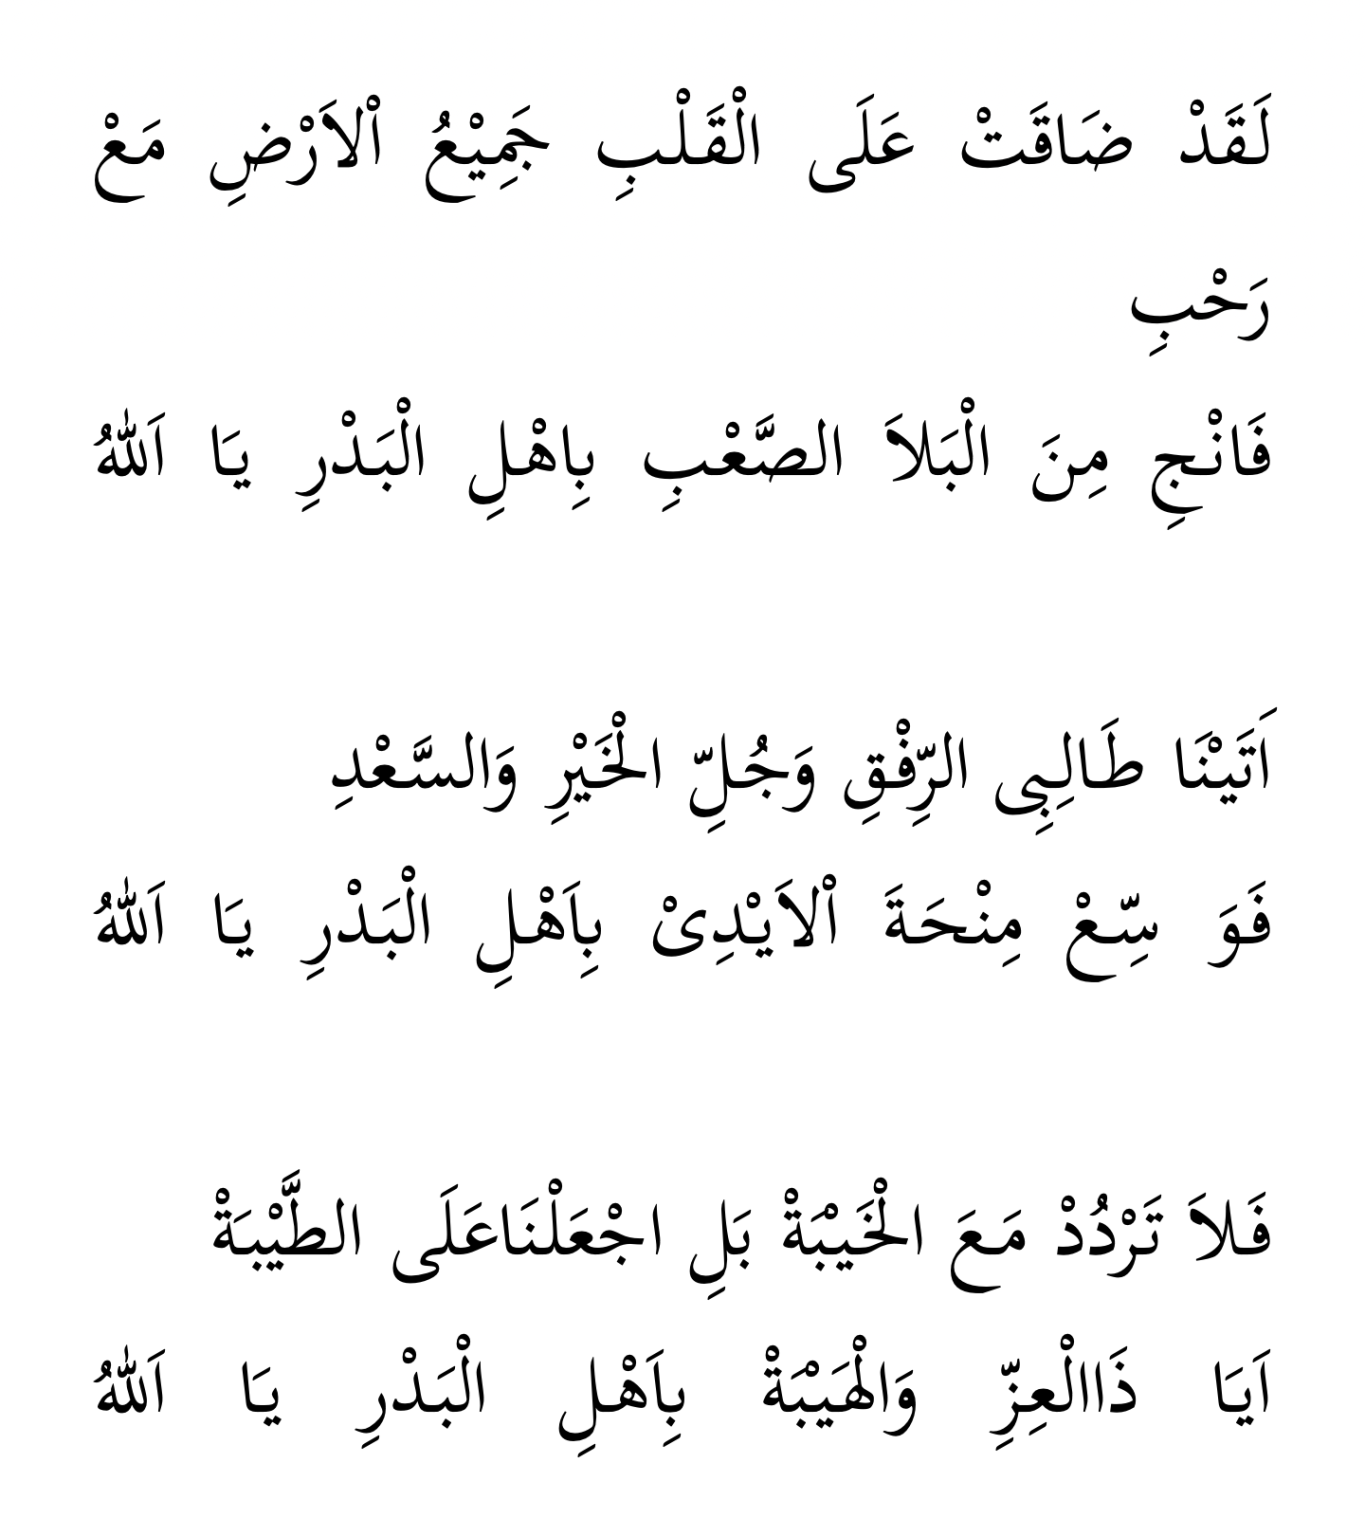 لَقَدْ ضَاقَتْ عَلَى الْقَلْبِ جَمِيْعُ اْلاَرْضِ مَعْ
رَحْبِ
فَانْجِ مِنَ الْبَلاَ الصَّعْبِ بِاهْلِ الْبَدْرِ يَا اَللهُ
اَتَيْنَا طَالِبِى الرِّفْقِ وَجُلِّ الْخَيْرِ وَالسَّعْدِ
فَوَ سِّعْ مِنْحَةَ اْلاَيْدِىْ بِاَهْلِ الْبَدْرِ يَا اَللهُ
فَلاَ تَرْدُدْ مَعَ الْخَيْبَةْ بَلِ اجْعَلْنَاعَلَى الطَّيْبَةْ
اَيَا ذَاالْعِزِّ وَالْهَيْبَةْ بِاَهْلِ الْبَدْرِ يَا اَللهُ